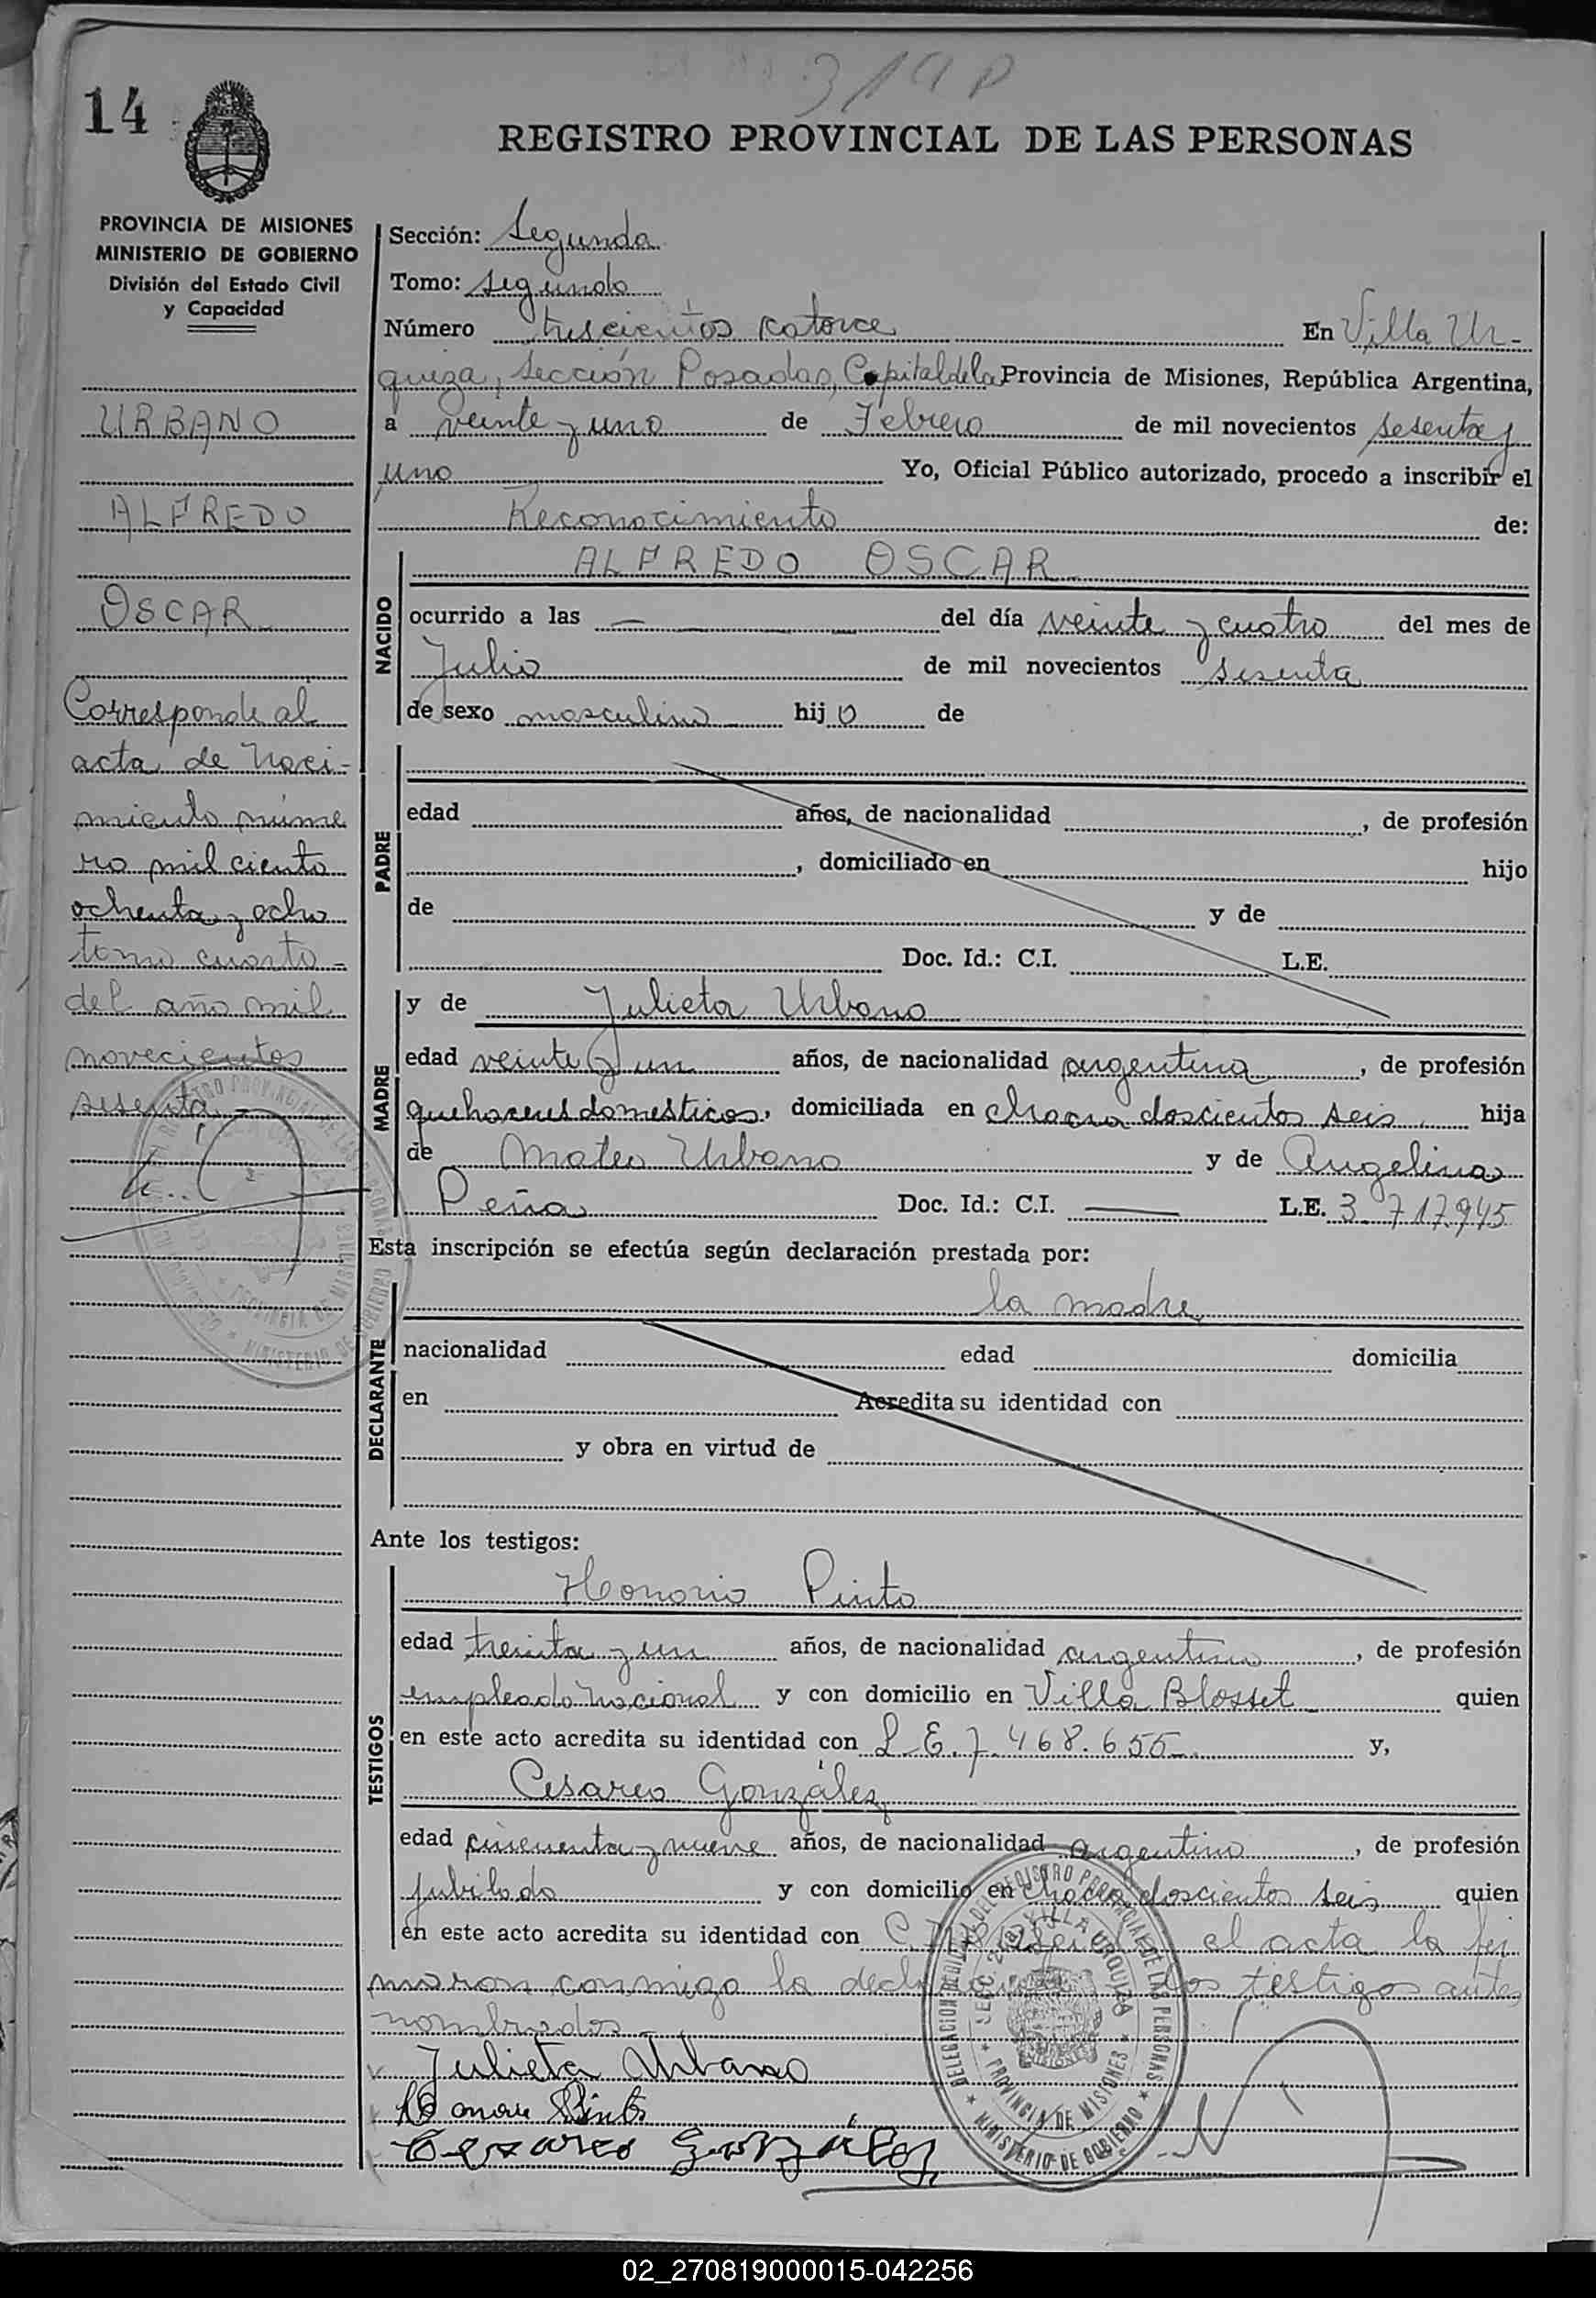 319 P
14
REGISTRO PROVINCIAL DE LAS PERSONAS
PROVINCIA DE MISIONES
MINISTERIO DE GOBIERNO
División del Estado Civil
y Capacidad
URBANO
ALFREDO
OSCAR
Corresponde al
acta de naci-
miento núme
ro mil ciento
ochenta y ocho
tomo cuarto -
del año mil
novecientos
sesenta -
Sección: Segunda
Tomo: segundo
Número trescientos catorce En Villa Ur-
quiza, Sección Posadas, Capital de la Provincia de Misiones, República Argentina,
a veinte y uno de Febrero de mil novecientos sesenta y
uno Yo, Oficial Público autorizado, procedo a inscribir el
Reconocimiento de:
NACIDO
ALFREDO OSCAR
ocurrido a las — del día veinte y cuatro del mes de
Julio de mil novecientos sesenta
de sexo masculino hijo de
PADRE
edad años, de nacionalidad , de profesión
, domiciliado en hijo
de y de
Doc. Id.: C.I. L.E.
MADRE
y de Julieta Urbano
edad veinte y un años, de nacionalidad argentina, de profesión
quehaceres domesticos, domiciliada en chacra doscientos seis hija
de Mateo Urbano y de Angelina
Peña Doc. Id.: C.I. — L.E. 3.717.945
Esta inscripción se efectúa según declaración prestada por:
DECLARANTE
la madre
nacionalidad edad domicilia
en Acredita su identidad con
y obra en virtud de
Ante los testigos:
TESTIGOS
Honorio Pinto
edad treinta y un años, de nacionalidad argentino, de profesión
empleado nacional y con domicilio en Villa Blosset quien
en este acto acredita su identidad con L.E. 7.468.655 y,
Cesareo González
edad cincuenta y nueve años, de nacionalidad argentino, de profesión
jubilado y con domicilio en chacra doscientos seis quien
en este acto acredita su identidad con C. el acta la fir
maron conmigo la los testigos antes
nombrados
Julieta Urbano
Pinto
Cesareo González
DELEGACION DEL REGISTRO PROVINCIAL DE LAS PERSONAS
SECC. 2da VILLA URQUIZA
PROVINCIA DE MISIONES
MINISTERIO DE GOBIERNO
02_270819000015-042256